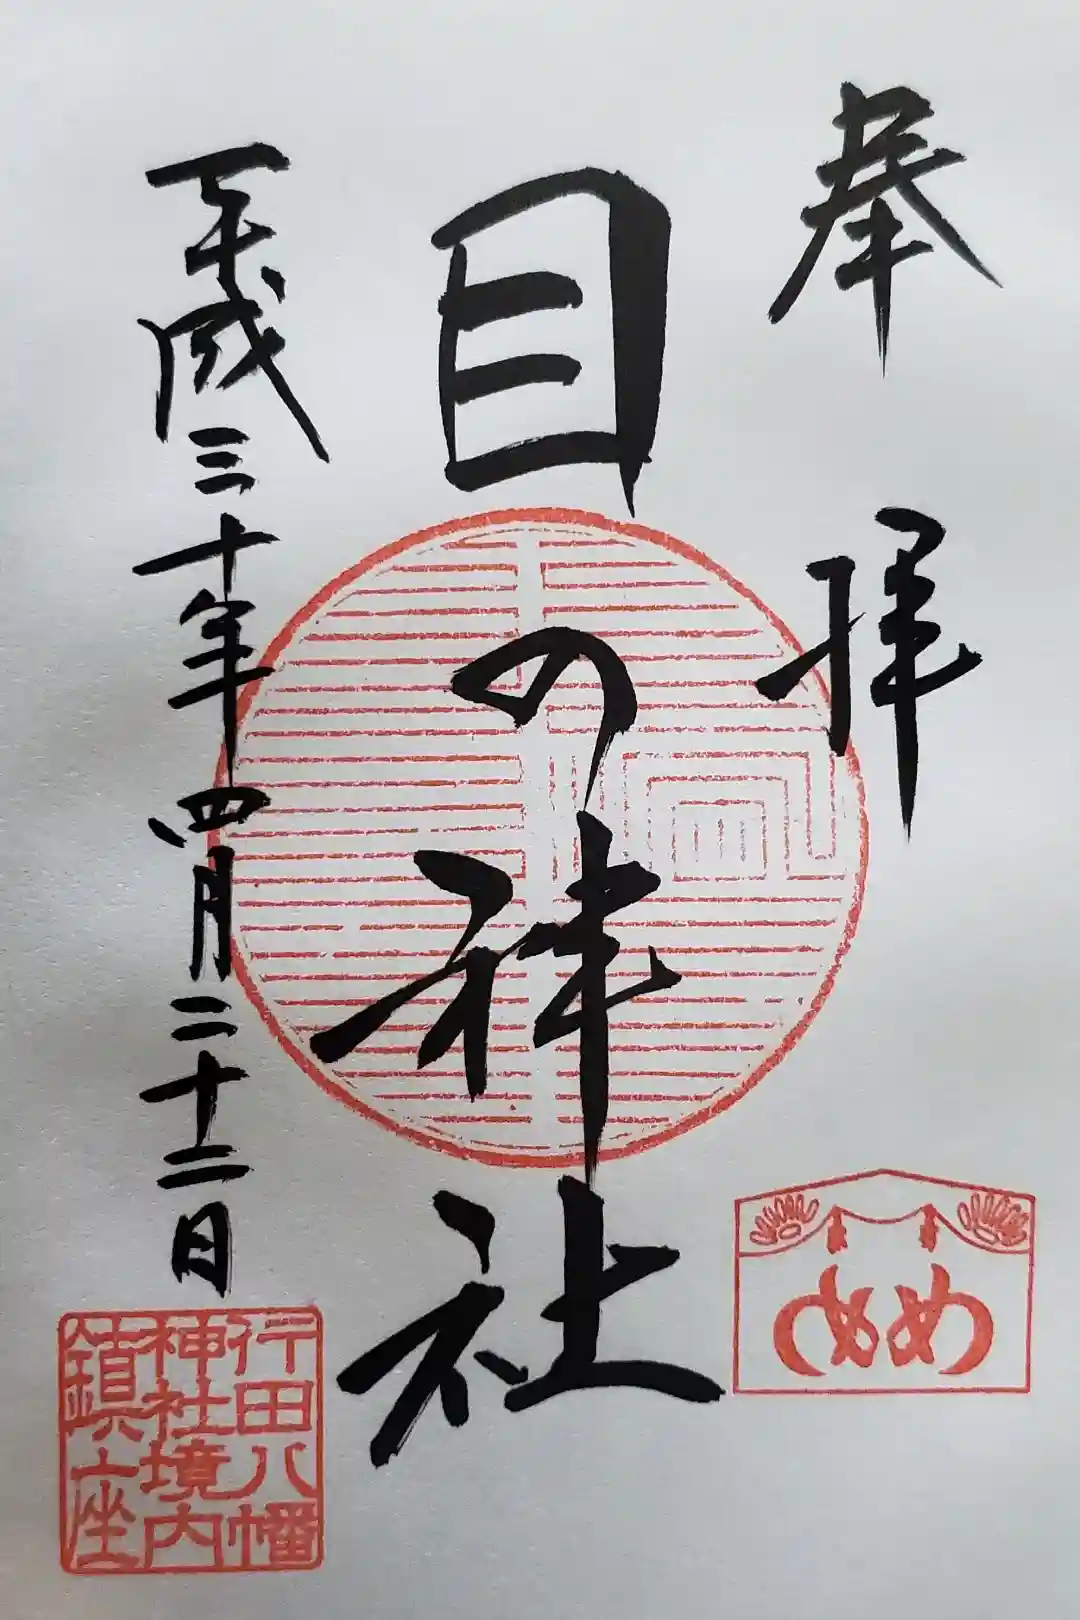 奉拝
目の神社
平成三十年四月二十二日
めめ
行田八幡
神社境内
鎮座